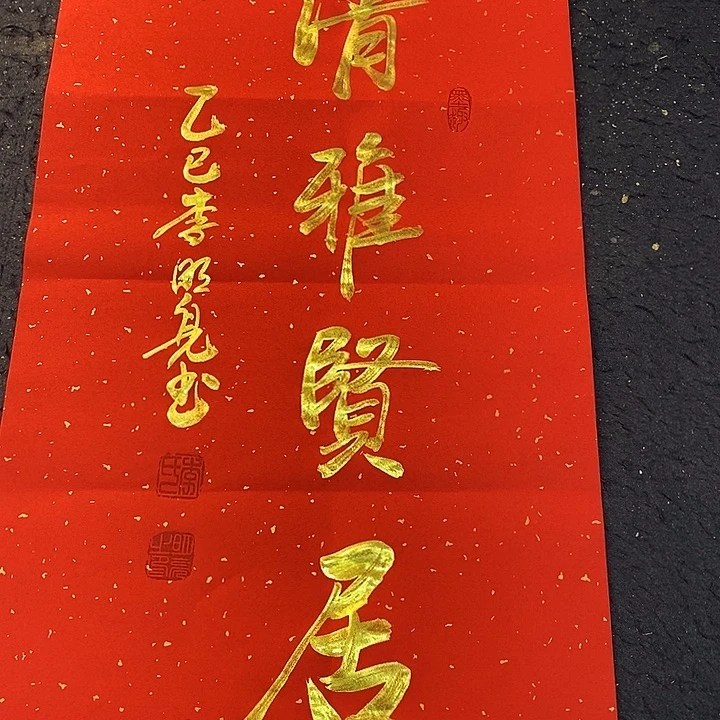 清雅賢居
乙巳李明亮书